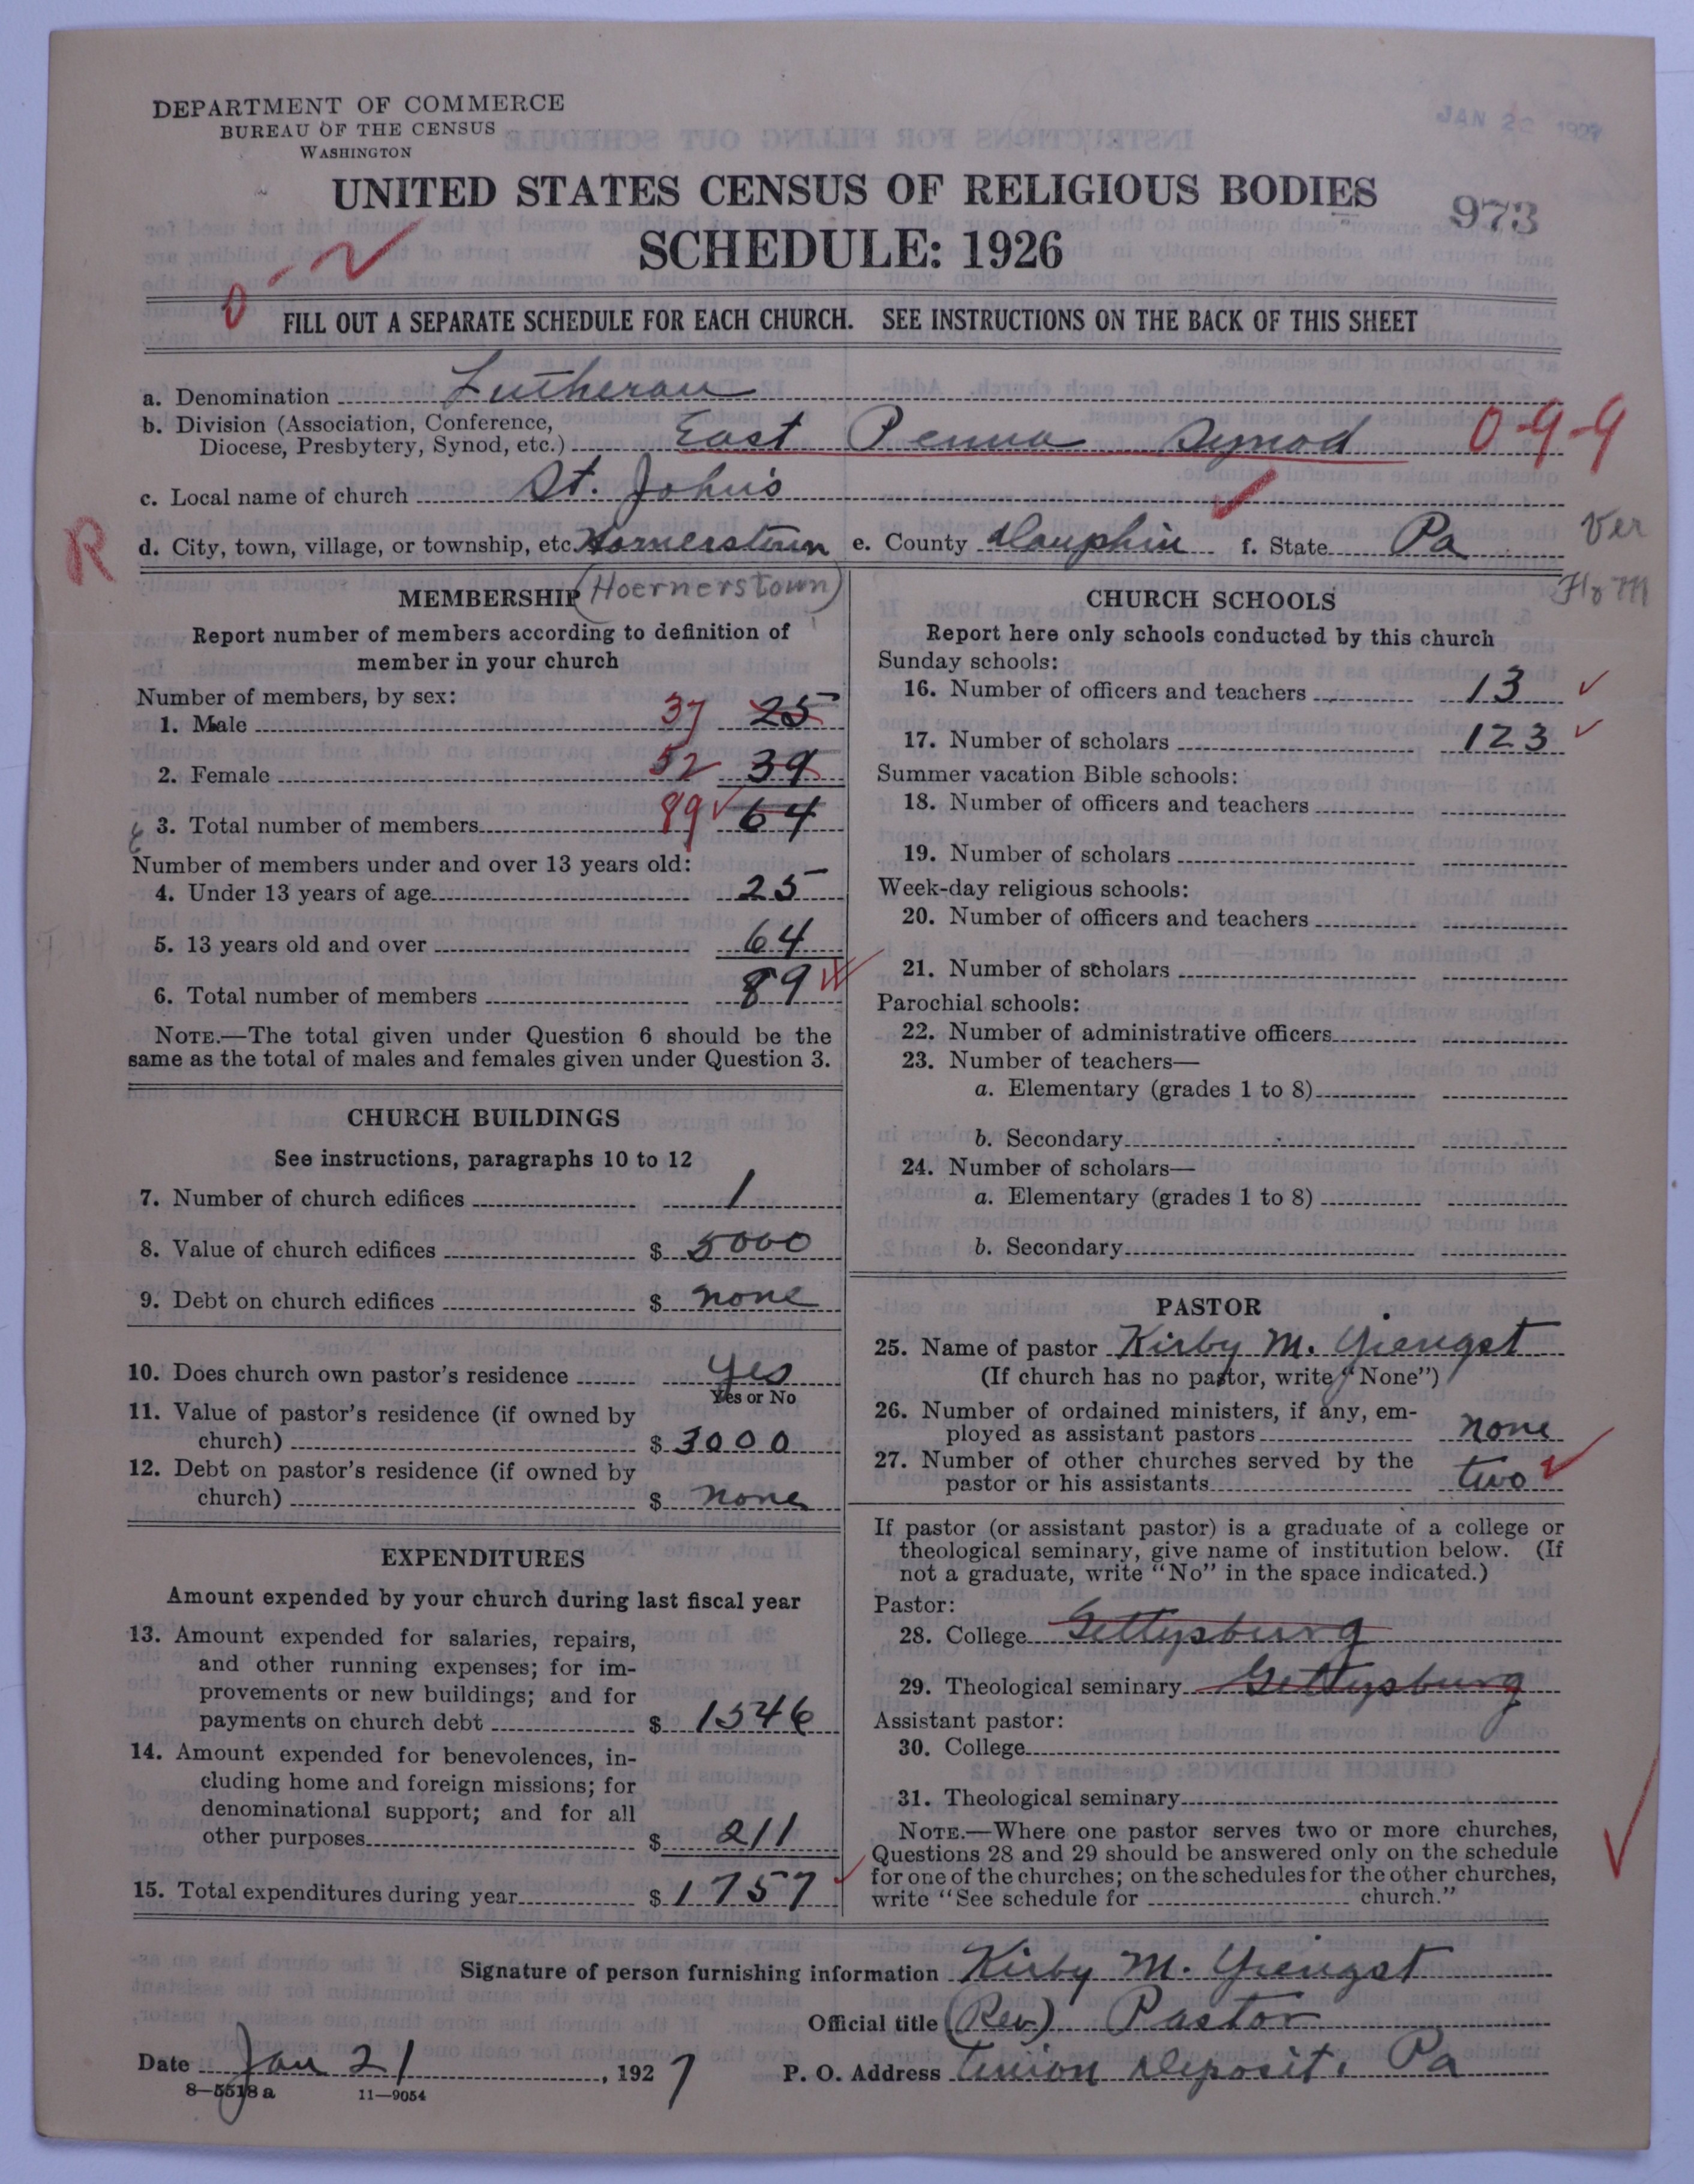 DEPARTMENT OF COMMERCE
BUREAU OF THE CENSUS
WASHINGTON
JAN 2 1927
UNITED STATES CENSUS OF RELIGIOUS BODIES
973
SCHEDULE: 1926
0-2
FILL OUT A SEPARATE SCHEDULE FOR EACH CHURCH. SEE INSTRUCTIONS ON THE BACK OF THIS SHEET
a. Denomination Lutheran
b. Division (Association, Conference,
Diocese, Presbytery, Synod, etc.) East Penna Synod 0-9-9
c. Local name of church St. John's
R d. City, town, village, or township, etc. Hornerstown e. County Dauphin f. State Pa Ver
(Hoernerstown)
MEMBERSHIP
Report number of members according to definition of
member in your church
Number of members, by sex:
1. Male 37 25
2. Female 52 39
3. Total number of members 89 64
Number of members under and over 13 years old:
4. Under 13 years of age 25
5. 13 years old and over 64
6. Total number of members 89
NOTE.—The total given under Question 6 should be the
same as the total of males and females given under Question 3.
CHURCH BUILDINGS
See instructions, paragraphs 10 to 12
7. Number of church edifices 1
8. Value of church edifices $ 5000
9. Debt on church edifices $ none
10. Does church own pastor's residence yes
Yes or No
11. Value of pastor's residence (if owned by
church) $ 3000
12. Debt on pastor's residence (if owned by
church) $ none
EXPENDITURES
Amount expended by your church during last fiscal year
13. Amount expended for salaries, repairs,
and other running expenses; for im-
provements or new buildings; and for
payments on church debt $ 1546
14. Amount expended for benevolences, in-
cluding home and foreign missions; for
denominational support; and for all
other purposes $ 211
15. Total expenditures during year $ 1757
CHURCH SCHOOLS
Report here only schools conducted by this church
Sunday schools:
16. Number of officers and teachers 13
17. Number of scholars 123
Summer vacation Bible schools:
18. Number of officers and teachers
19. Number of scholars
Week-day religious schools:
20. Number of officers and teachers
21. Number of scholars
Parochial schools:
22. Number of administrative officers
23. Number of teachers—
a. Elementary (grades 1 to 8)
b. Secondary
24. Number of scholars—
a. Elementary (grades 1 to 8)
b. Secondary
PASTOR
25. Name of pastor Kirby M. Yiengst
(If church has no pastor, write "None")
26. Number of ordained ministers, if any, em-
ployed as assistant pastors none
27. Number of other churches served by the
pastor or his assistants two
If pastor (or assistant pastor) is a graduate of a college or
theological seminary, give name of institution below. (If
not a graduate, write "No" in the space indicated.)
Pastor:
28. College Gettysburg
29. Theological seminary Gettysburg
Assistant pastor:
30. College
31. Theological seminary
NOTE.—Where one pastor serves two or more churches,
Questions 28 and 29 should be answered only on the schedule
for one of the churches; on the schedules for the other churches,
write "See schedule for church."
Signature of person furnishing information Kirby M. Yiengst
Official title (Rev) Pastor
Date Jan 21, 1927 P. O. Address Union Deposit, Pa
8—5518 a 11—9054